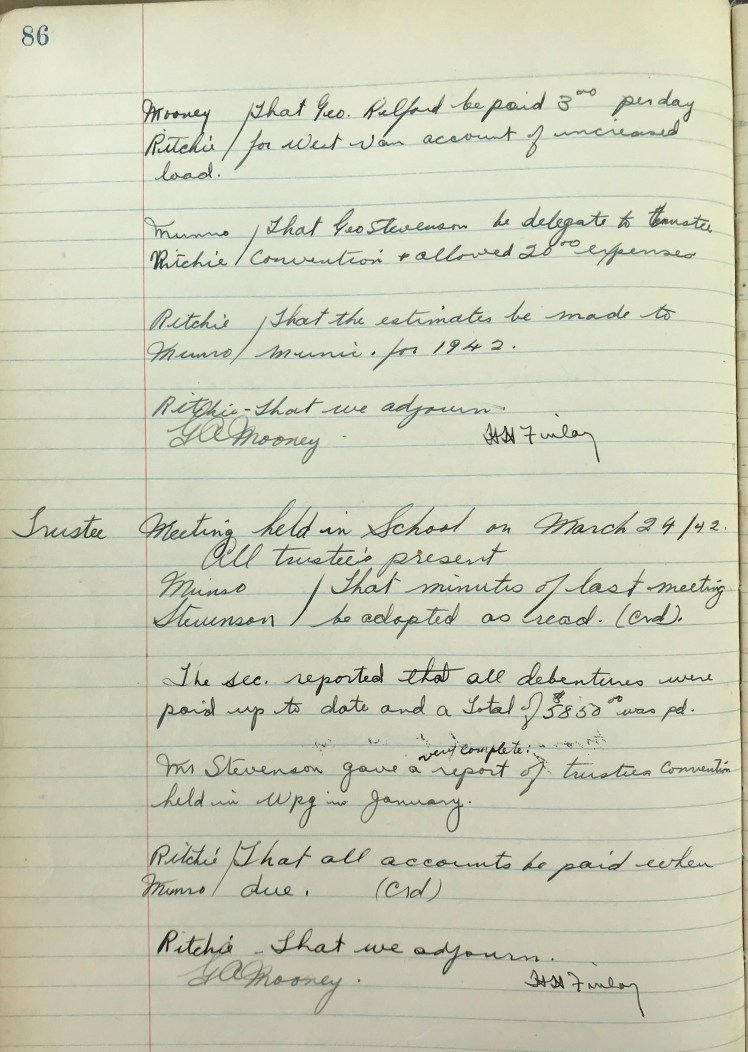 86
Mooney / That Geo. Relford be paid 3⁰⁰ per day
Ritchie / for West Van account of increased
load.
Munro / That Geo Stevenson be delegate to trustee
Ritchie / Convention + allowed 20⁰⁰ expenses
Ritchie / That the estimates be made to
Munro / munic. for 1942.
Ritchie - That we adjourn.
GA Mooney. HH Finlay
Trustee Meeting held in School on March 24/42.
All trustee's present
Munro / That minutes of last meeting
Stevenson / be adopted as read. (Crd).
The sec. reported that all debentures were
paid up to date and a Total of $5850⁰⁰ was pd.
very complete
Mr Stevenson gave a report of trustees Convention
held in Wpg in January.
Ritchie / That all accounts be paid when
Munro / due. (Crd)
Ritchie - That we adjourn.
GA Mooney. HH Finlay